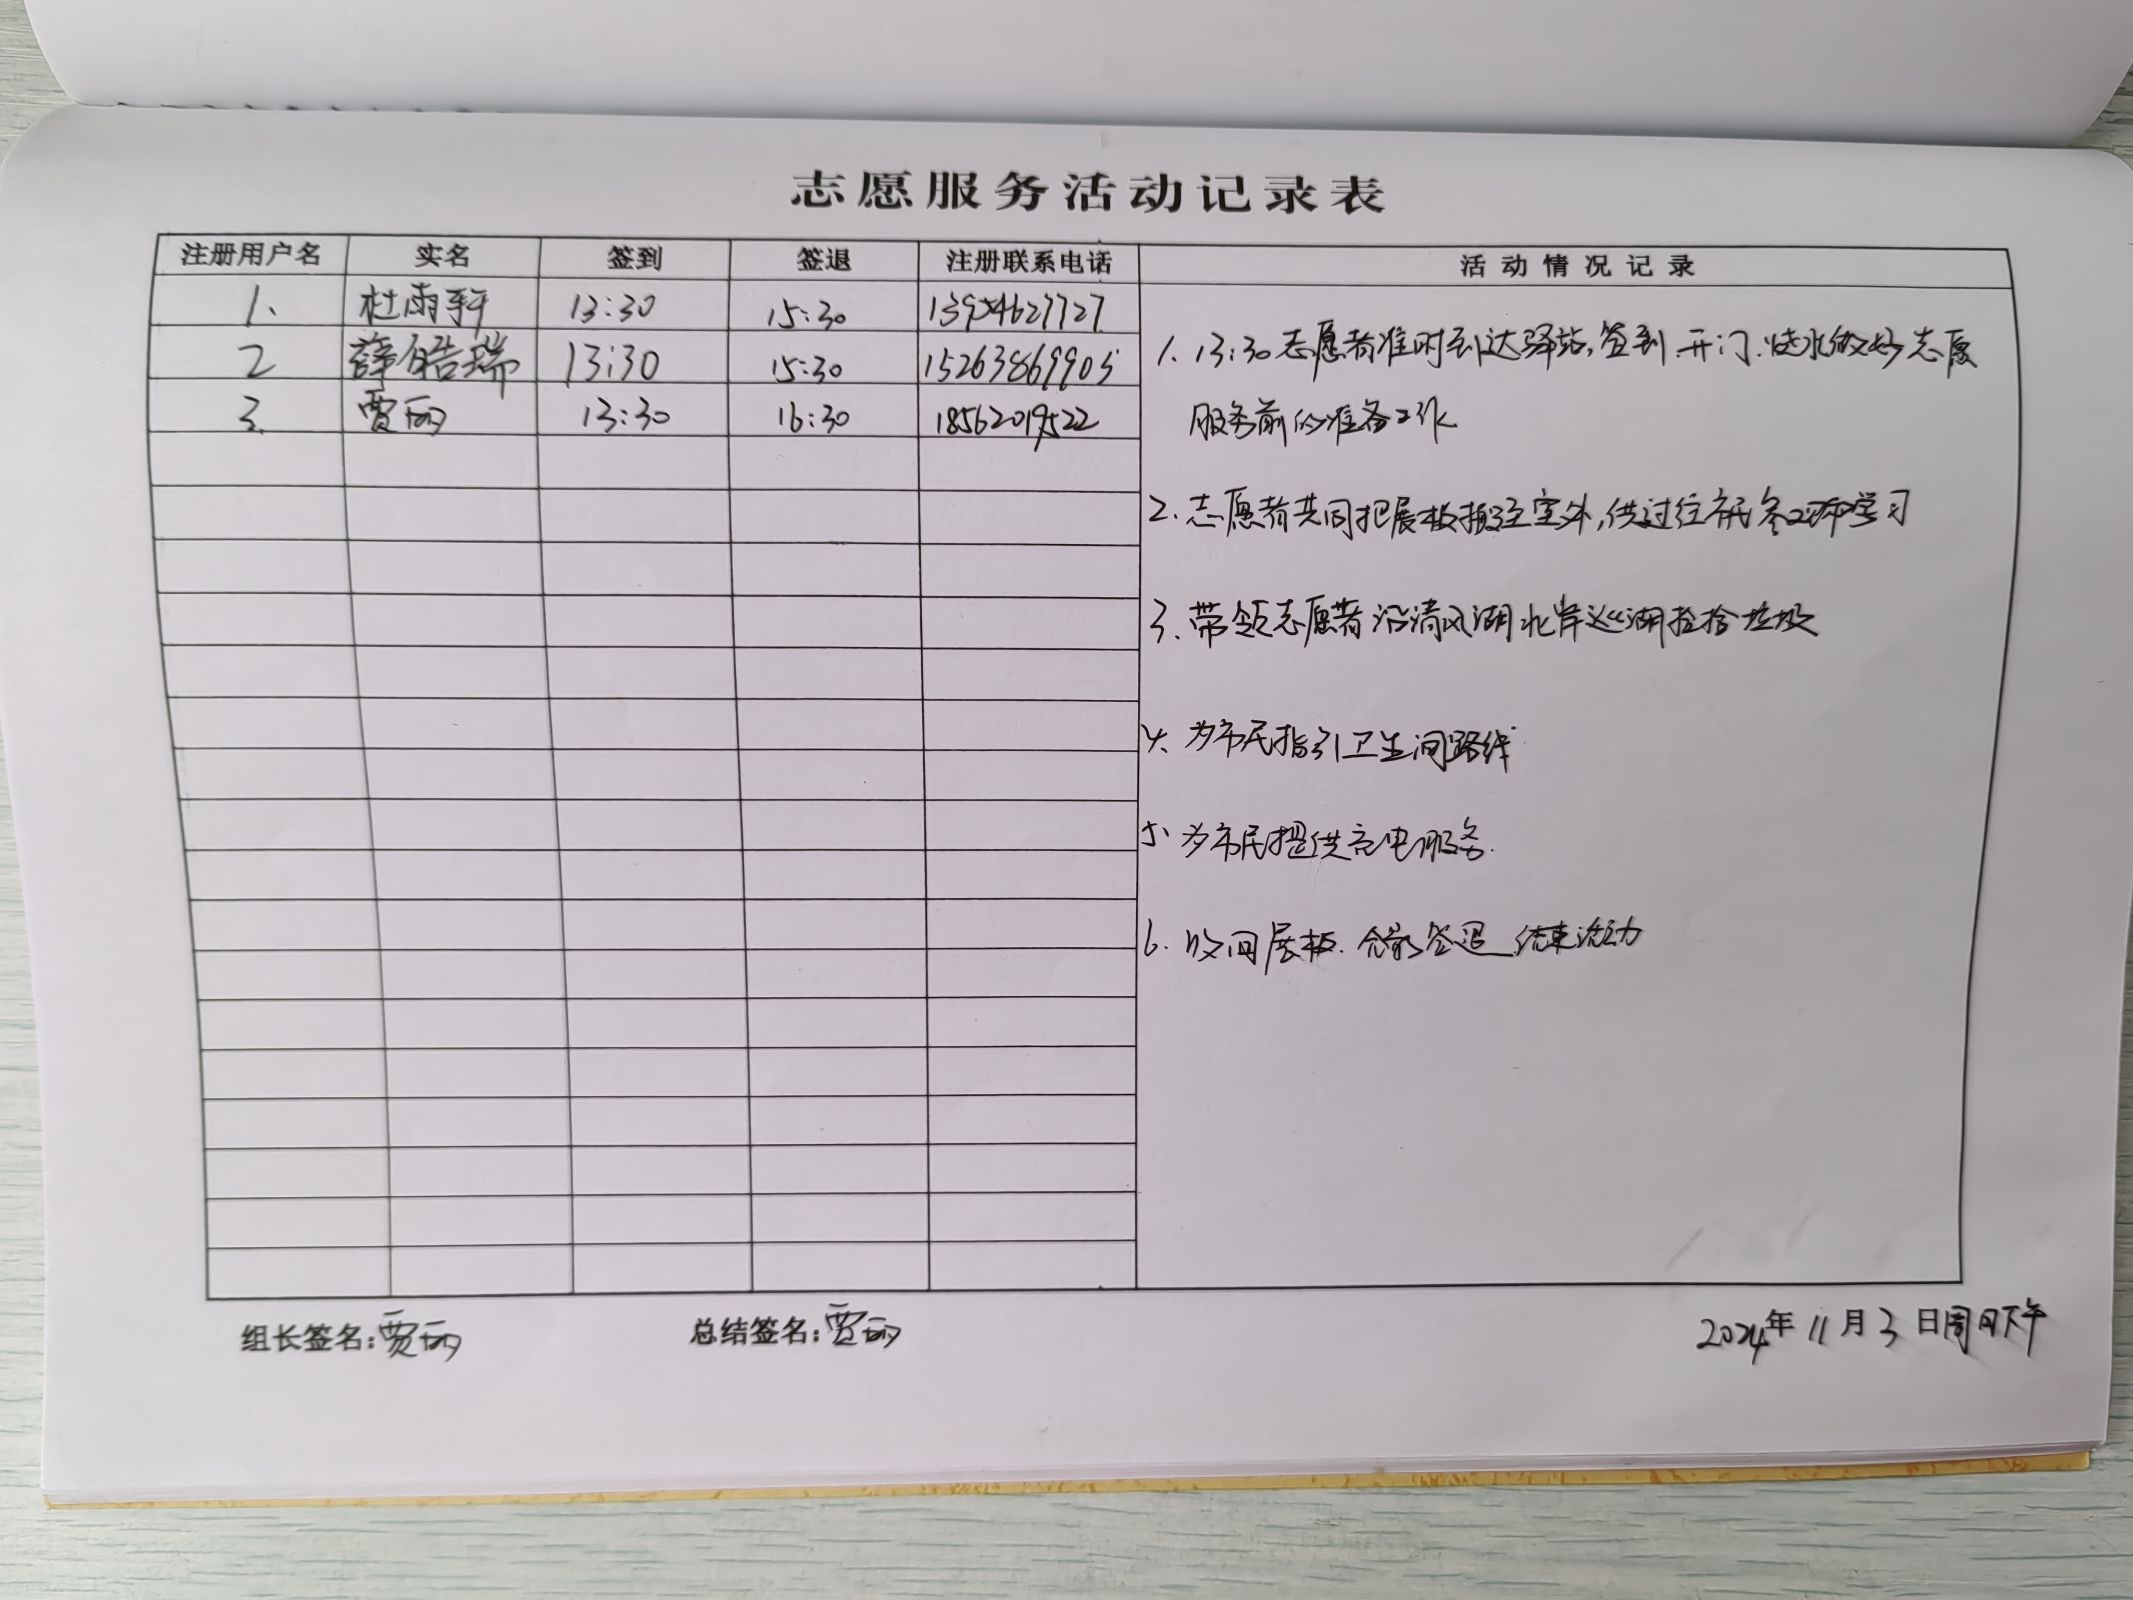 志愿服务活动记录表
注册用户名 实名 签到 签退 注册联系电话 活动情况记录
1、 杜雨轩 13:30 15:30 13954627727
2 薛皓瑞 13:30 15:30 15263869905
3、 贾丽 13:30 16:30 18562019522
1、13:30志愿者准时到达驿站,签到.开门.烧水做好志愿
服务前的准备工作
2.志愿者共同把展板搬至室外,供过往市民参观学习
3、带领志愿者沿清风湖北岸巡湖捡拾垃圾
4、为市民指引卫生间路线
5、为市民提供充电服务.
6.收回展板.合影签退 结束活动
组长签名:贾丽 总结签名:贾丽 2024年11月3日周日下午